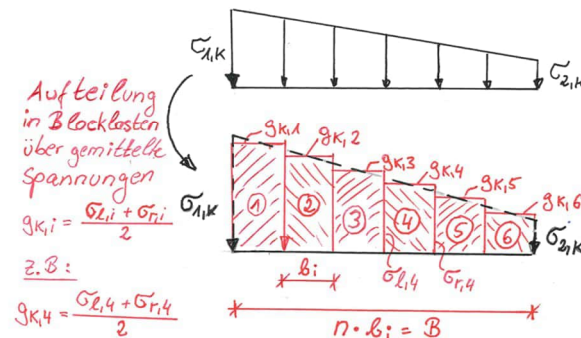 σ1,K
σ2,K
Aufteilung
in Blocklasten
über gemittelte
Spannungen
gK,i = (σl,i + σr,i) / 2
z.B:
gK,4 = (σl,4 + σr,4) / 2
gK,1
gK,2
gK,3
gK,4
gK,5
gK,6
σ1,K
1
2
3
4
5
6
σ2,K
bi
σl,4
σr,4
n · bi = B